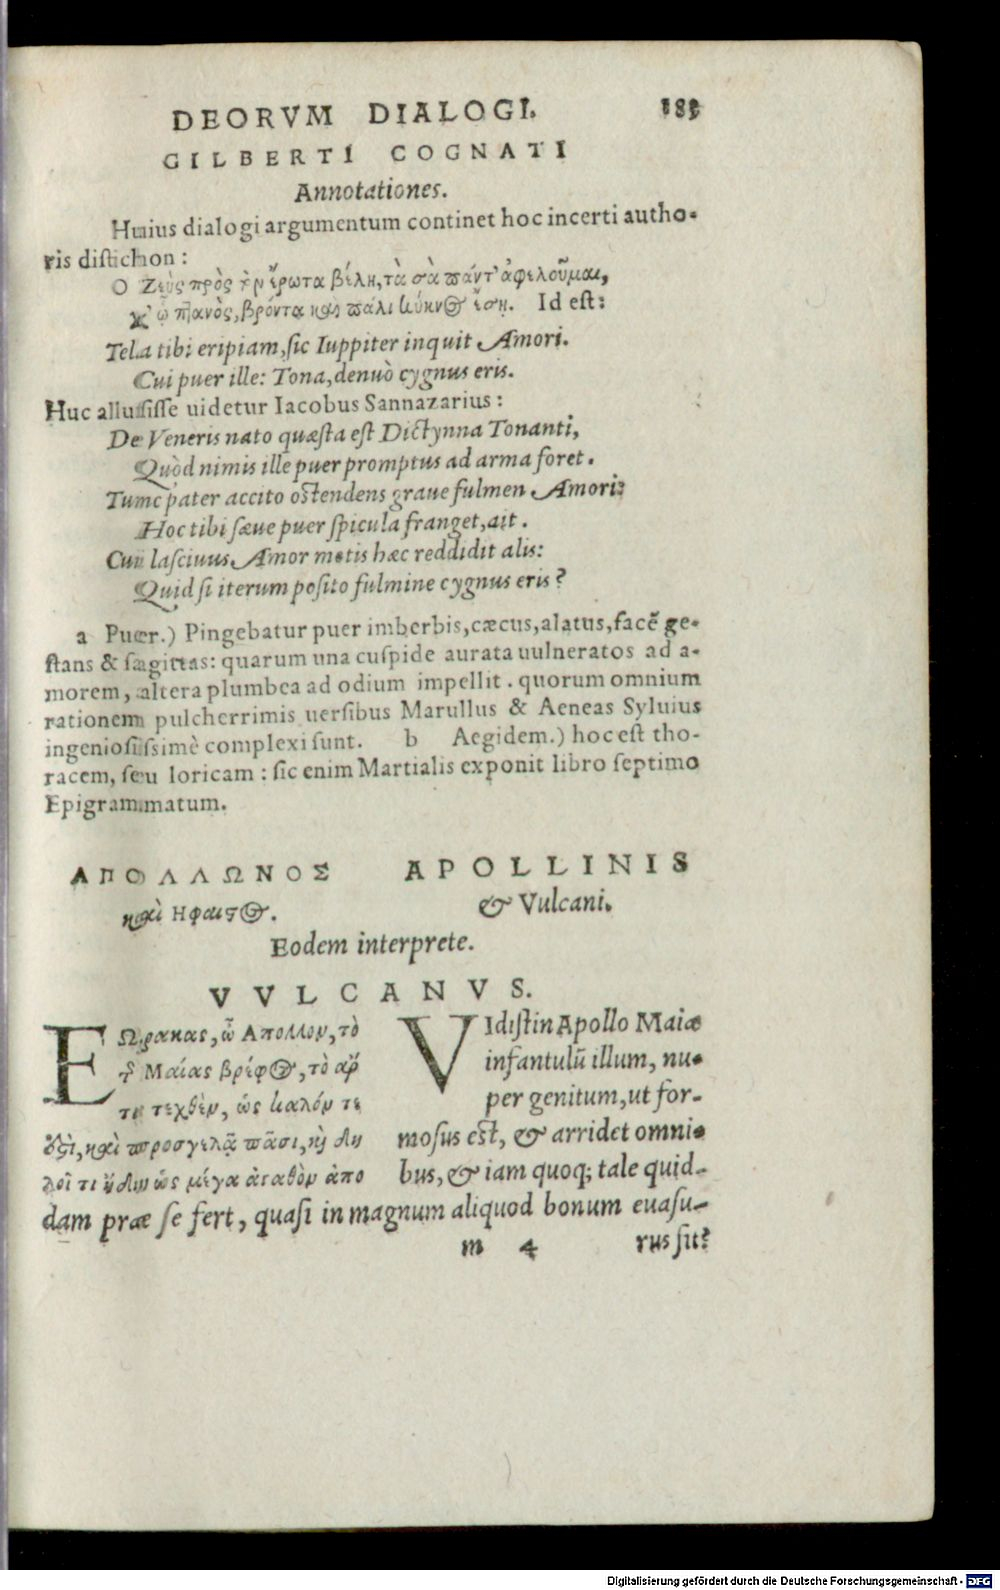 DEORVM DIALOGI. 183
GILBERTI COGNATI
Annotationes.
Huius dialogi argumentum continet hoc incerti autho-
ris distichon:
Ο Ζεὺς πρὸς τὸν ἔρωτα βέλη, τὰ σὰ πάντ' ἀφελοῦμαι,
χ' ὠ πτανὸς, βρόντα καὶ πάλι κύκνος ἔση. Id est:
Tela tibi eripiam, sic Iuppiter inquit Amori.
Cui puer ille: Tona, denuò cygnus eris.
Huc allusisse uidetur Iacobus Sannazarius:
De Veneris nato quæsta est Dictynna Tonanti,
Quòd nimis ille puer promptus ad arma foret.
Tunc pater accito ostendens graue fulmen Amori:
Hoc tibi sæue puer spicula franget, ait.
Cui lasciuus Amor motis hæc reddidit alis:
Quid si iterum posito fulmine cygnus eris?
a Puer.) Pingebatur puer imberbis, cæcus, alatus, facẽ ge-
stans & sagittas: quarum una cuspide aurata uulneratos ad a-
morem, altera plumbea ad odium impellit. quorum omnium
rationem pulcherrimis uersibus Marullus & Aeneas Syluius
ingeniosissimè complexi sunt. b Aegidem.) hoc est tho-
racem, seu loricam: sic enim Martialis exponit libro septimo
Epigrammatum.
ΑΠΟΛΛΩΝΟΣ
καὶ Ηφαιστος.
APOLLINIS
& Vulcani.
Eodem interprete.
VVLCANVS.
ΕΩρακας, ὦ Απολλον, τὸ
τ͂ Μαίας βρέφος, τὸ ἄρ
τι τεχθὲν, ὡς καλόν τε
ὅξὶ, καὶ προσγελᾷ πᾶσι, καὶ δη
λοῖ τι ἤδη ὡς μέγα ἀγαθὸν ἀπο
VIdistin Apollo Maiæ
infantulũ illum, nu-
per genitum, ut for-
mosus est, & arridet omni-
bus, & iam quoq; tale quid-
dam præ se fert, quasi in magnum aliquod bonum euasu-
m 4 rus sit?
Digitalisierung gefördert durch die Deutsche Forschungsgemeinschaft - DFG